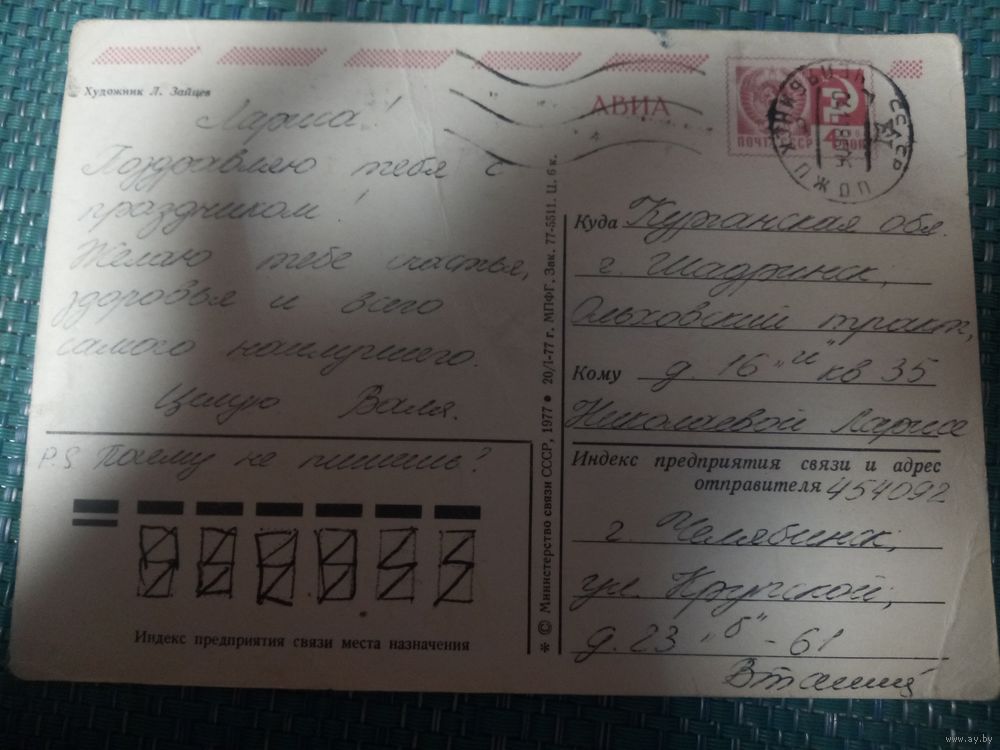 Художник Л. Зайцев
АВИА
ПОЧТА СССР
Лариса!
Поздравляю тебя с
праздником!
Желаю тебе счастья,
здоровья и всего
самого наилучшего.
Целую Валя.
P.S. Почему не пишешь?
Индекс предприятия связи места назначения
* © Министерство связи СССР, 1977 ● 20/I-77 г. МПФГ. Зак. 77-5511. Ц. 6 к.
Куда Курганская обл.
г. Шадринск,
Ольховский тракт,
Кому д. 16 "и" кв 35
Николаевой Ларисе
Индекс предприятия связи и адрес
отправителя 454092
г. Челябинск,
ул. Крупской,
д. 23 "б" - 61
www.ay.by